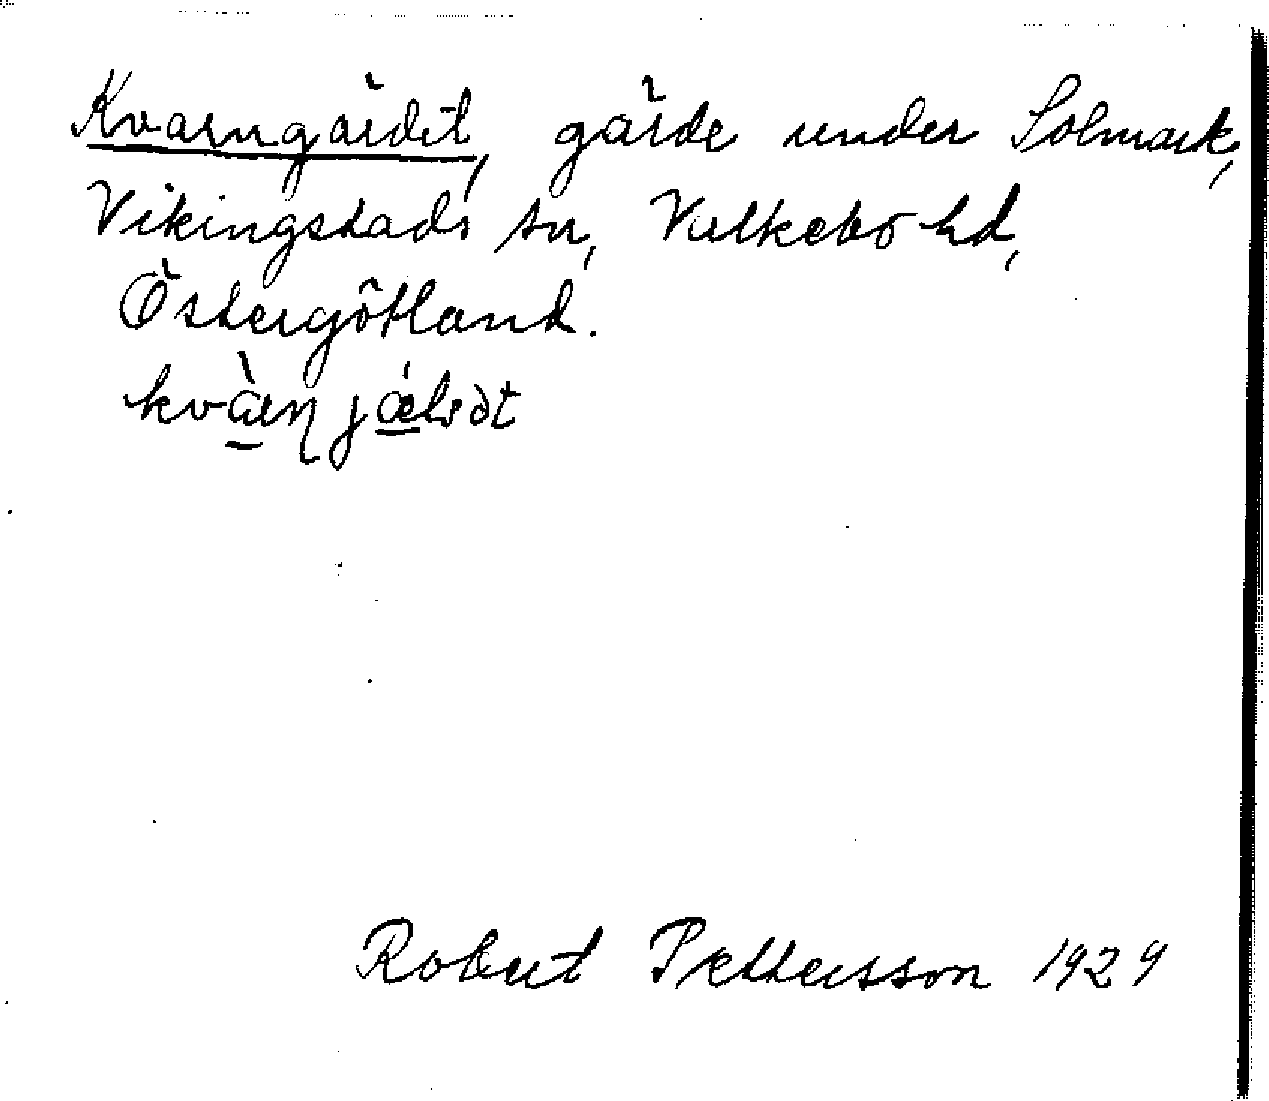 Kvarngärdet, gärde under Solmark,
Vikingstads sn, Valkebo hd,
Östergötland.
Robert Pettersson 1929